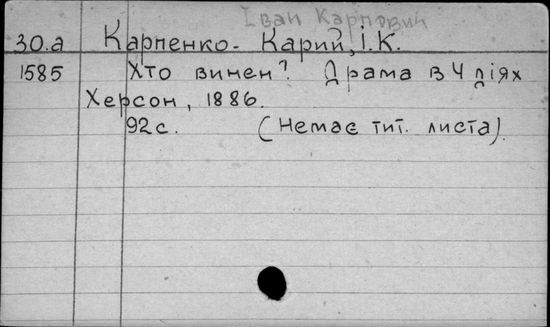 Іван Карпович
30.а Карпенко-Карий, І.К.
1585 Хто винен? Драма в 4 діях
Херсон, 1886.
92с. (Немає тит. листа).